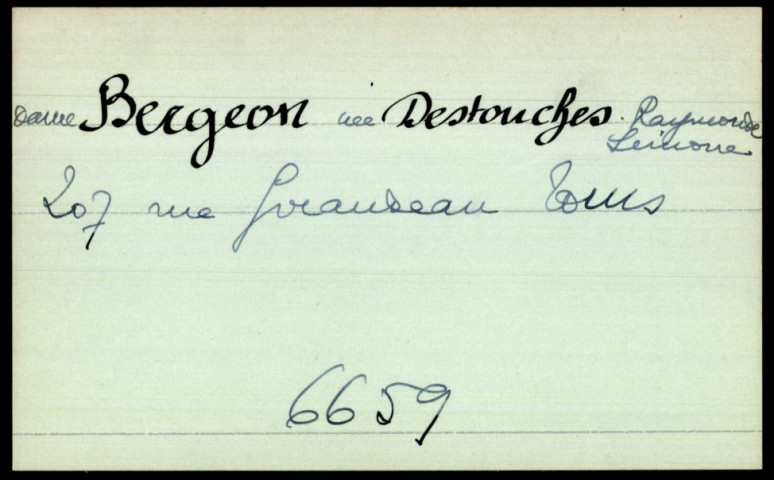 Dame Bergeon née Destouches. Raymonde
Simone
207 rue Giraudeau Tours
6659